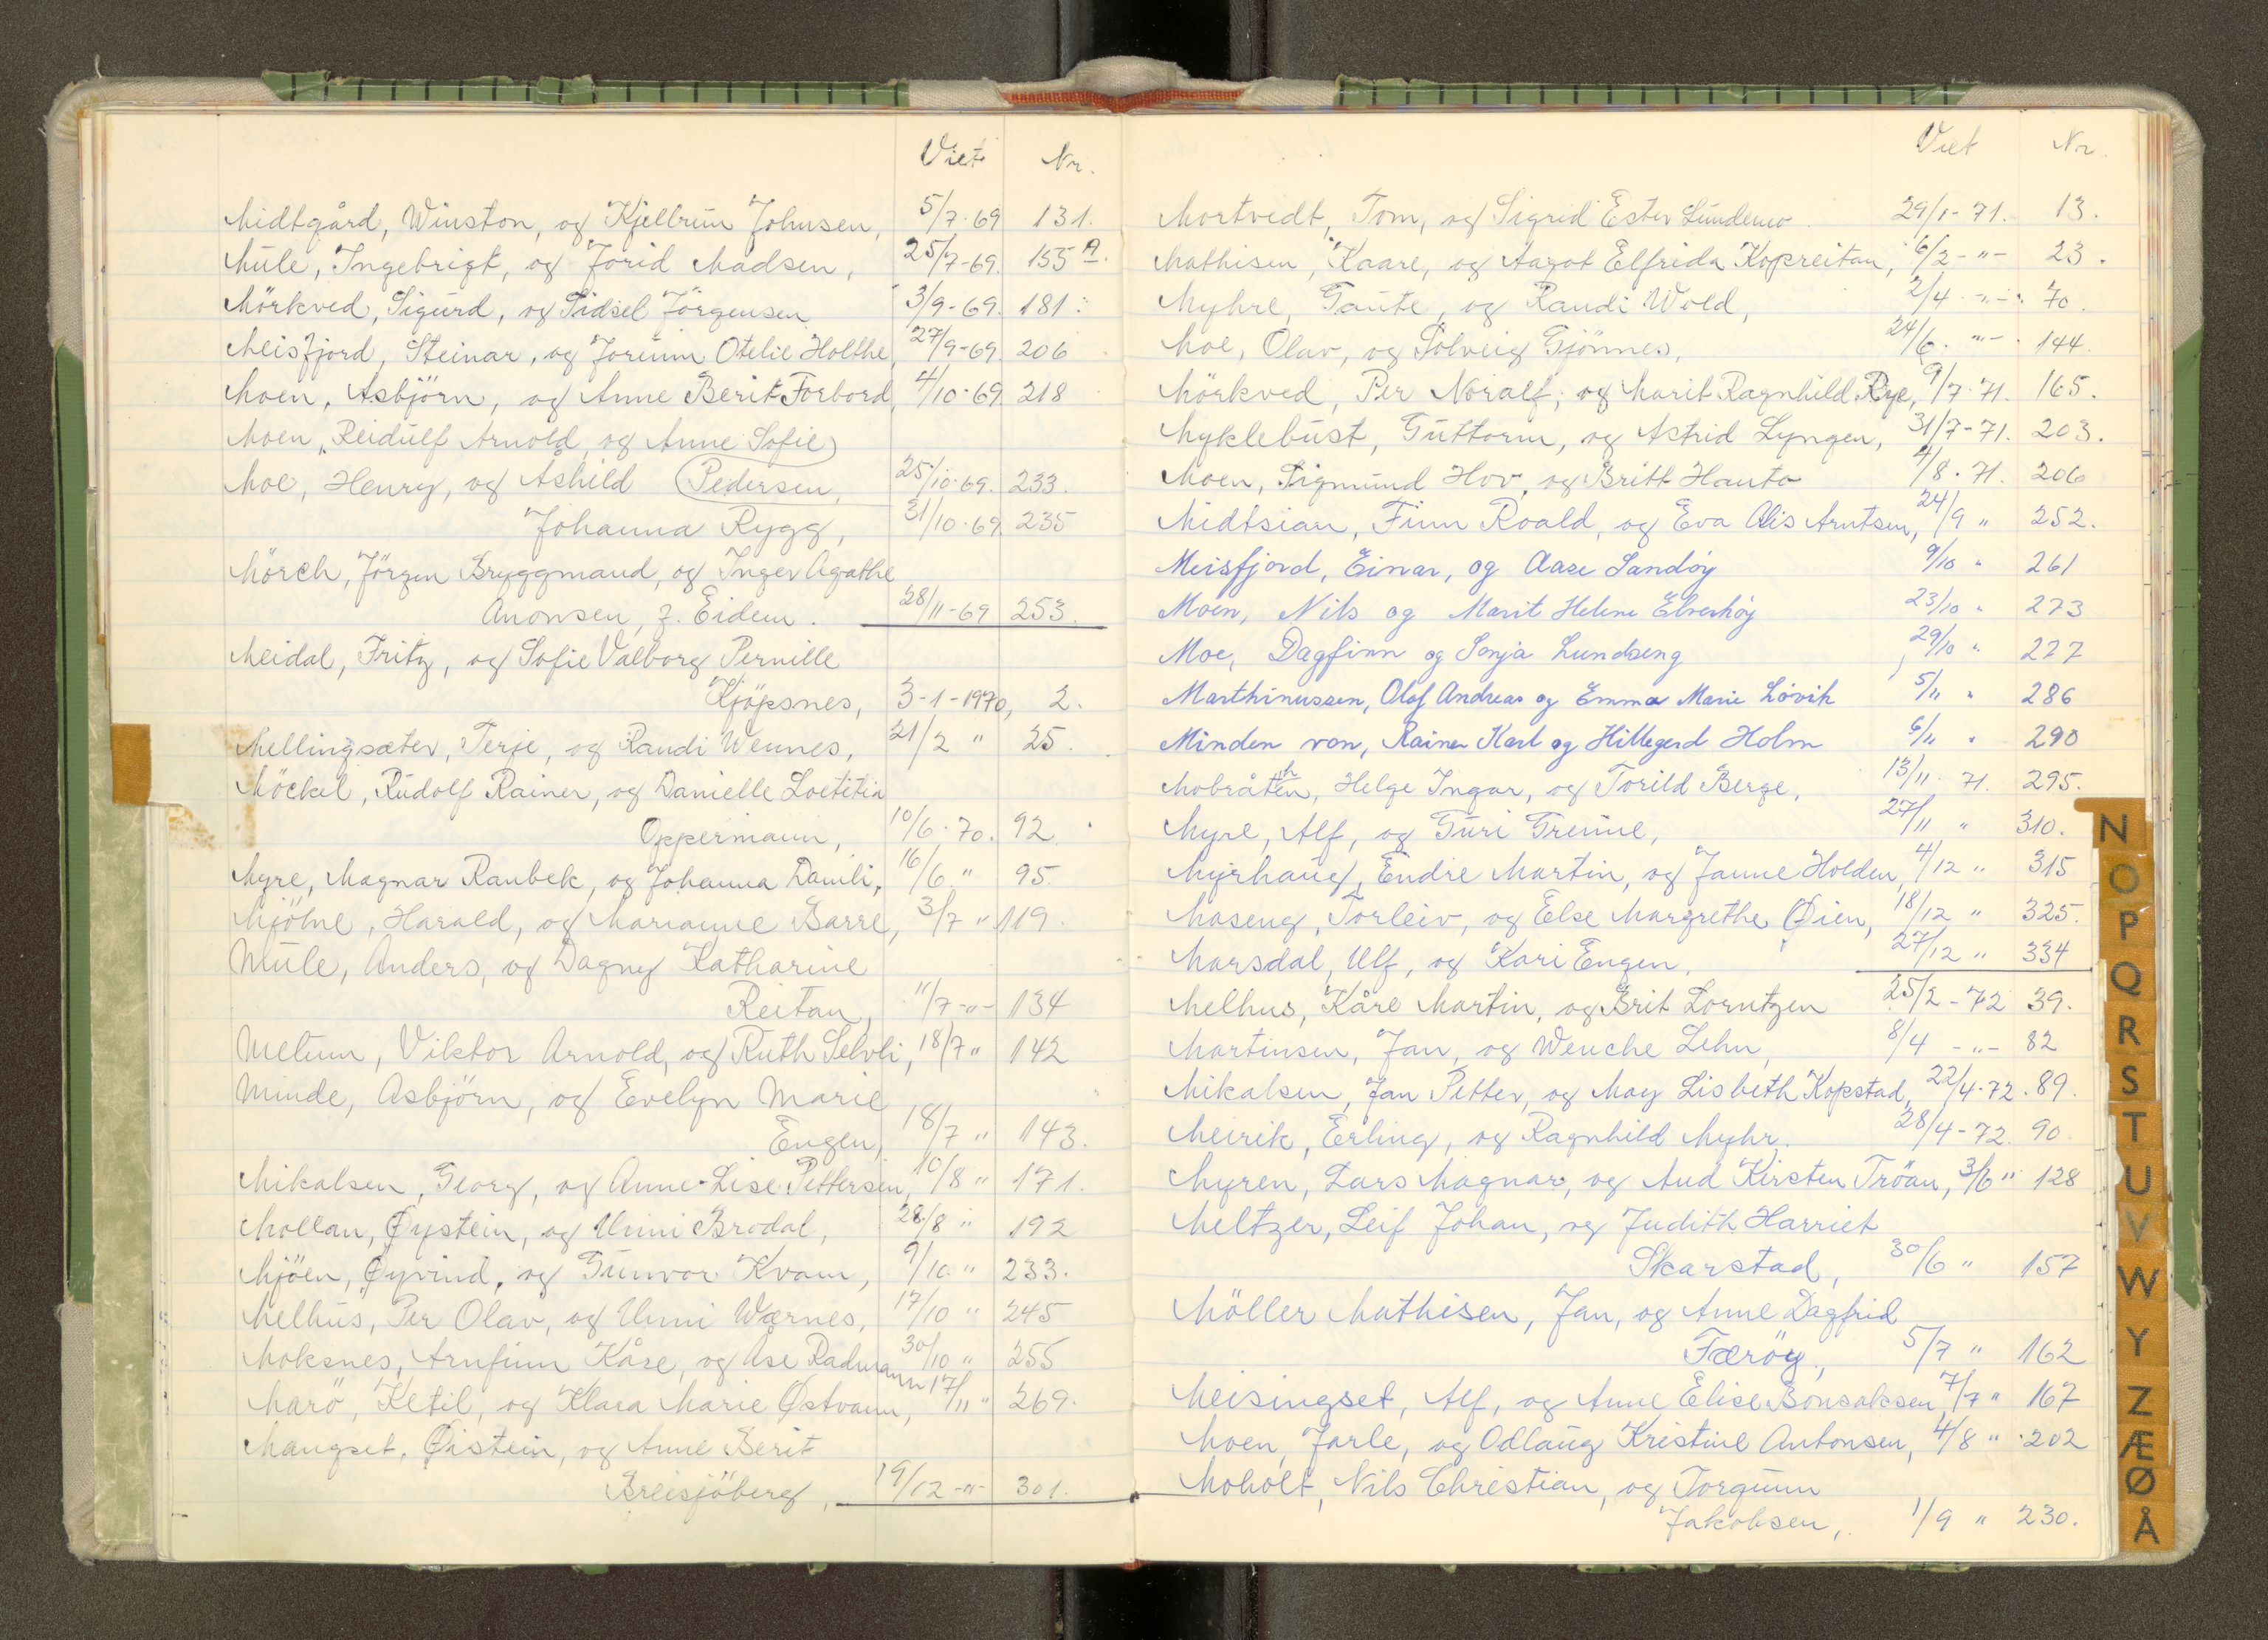 Viet Nr.
Midtgård, Winston, og Kjellrun Johnsen, 5/7-69 131.
Mule, Ingebrigt, og Jorid Madsen, 25/7-69. 155 A.
Mörkved, Sigurd, og Sidsel Jörgensen 3/9-69. 181.
Meisfjord, Steinar, og Jorunn Otelie Holthe, 27/9-69. 206
Moen, Asbjörn, og Anne Berit Forbord, 4/10-69. 218
Moen, Reidulf Arnold, og Anne Sofie
Moe, Henry, og Åshild Pedersen, 25/10-69. 233.
Johanna Rygg, 31/10-69. 235
Mörch, Jörgen Bryggmand, og Inger Agathe
Aronsen, f. Eidem. 28/11-69 253.
Meidal, Fritz, og Sofie Valborg Pernille
Kjöpsnes, 3-1-1970, 2.
Mellingsæter, Terje, og Randi Wennes, 21/2 " 25.
Möckel, Rudolf Rainer, og Danielle Loetitia
Oppermann, 10/6-70. 92.
Myre, Magnar Raubek, og Johanna Danili, 16/6 " 95.
Mjölne, Harald, og Marianne Barre, 3/7 " 119.
Mule, Anders, og Dagny Katharine
Reitan, 11/7 -"- 134
Metum, Viktor Arnold, og Ruth Selvli, 18/7 " 142
Minde, Asbjörn, og Evelyn Marie
Engen, 18/7 " 143.
Mikalsen, Georg, og Anne-Lise Pettersen, 10/8 " 171.
Mollan, Øystein, og Unni Brodal, 28/8 " 192
Mjöen, Øyvind, og Gunvor Kvam, 9/10 " 233.
Melhus, Per Olav, og Unni Wærnes, 17/10 " 245
Moksnes, Arnfinn Kåre, og Åse Radmann 30/10 " 255
Marö, Ketil, og Klara Marie Østvann, 17/11 " 269.
Mangset, Øistein, og Anne Berit
Breisjöberg, 19/12 -"- 301.
Viet Nr.
Mortvedt, Tom, og Sigrid Ester Lundemo. 29/1-71. 13.
Mathisen, Kaare, og Aagot Elfrida Kopreitan, 6/2 -"- 23.
Myhre, Gaute, og Randi Wold, 2/4 -"- 70.
Moe, Olav, og Solveig Gjönnes, 24/6 -"- 144.
Mörkved, Per Noralf, og Marit Ragnhild Rye, 9/7-71. 165.
Myklebust, Guttorm, og Astrid Lyngen, 31/7-71. 203.
Moen, Sigmund Hov, og Britt Hauto 4/8-71. 206
Midtsian, Finn Roald, og Eva Alis Arntsen, 24/9 " 252.
Meisfjord, Einar, og Aase Sandöy 9/10 " 261
Moen, Nils og Marit Helene Elverhöy 23/10 " 273
Moe, Dagfinn og Sonja Lundseng 29/10 " 277
Marthinussen, Olaf Andreas og Emma Marie Lövik 5/11 " 286
Minden von, Rainer Karl og Hillegerd Holm 6/11 " 290
Mobråthen, Helge Ingar, og Torild Berge, 13/11 71. 295.
Myre, Alf, og Guri Grenne, 27/11 " 310.
Myrhaug, Endre Martin, og Janne Holden, 4/12 " 315
Moseng, Torleiv, og Else Margrethe Øien, 18/12 " 325.
Marsdal, Ulf, og Kari Engen, 27/12 " 334
Melhus, Kåre Martin, og Brit Lorntzen 25/2-72 39.
Martinsen, Jan, og Wenche Lehn, 8/4 -"- 82
Mikalsen, Jan Petter, og May Lisbeth Kopstad, 22/4-72. 89.
Meirik, Erling, og Ragnhild Myhr. 28/4-72. 90.
Myren, Lars Magnar, og Aud Kirsten Tröan, 3/6 " 128
Meltzer, Leif Johan, og Judith Harriet
Skarstad, 30/6 " 157
Möller Mathisen, Jan, og Anne Dagfrid
Færöy, 5/7 " 162
Meisingset, Alf, og Anne Elise Bonsaksen, 7/7 " 167
Moen, Jarle, og Odlaug Kristine Antonsen, 4/8 " 202
Moholt, Nils Christian, og Torgunn
Jakobsen, 1/9 " 230.
N
O
P
Q
R
S
T
U
V
W
Y
Z
Æ
Ø
Å